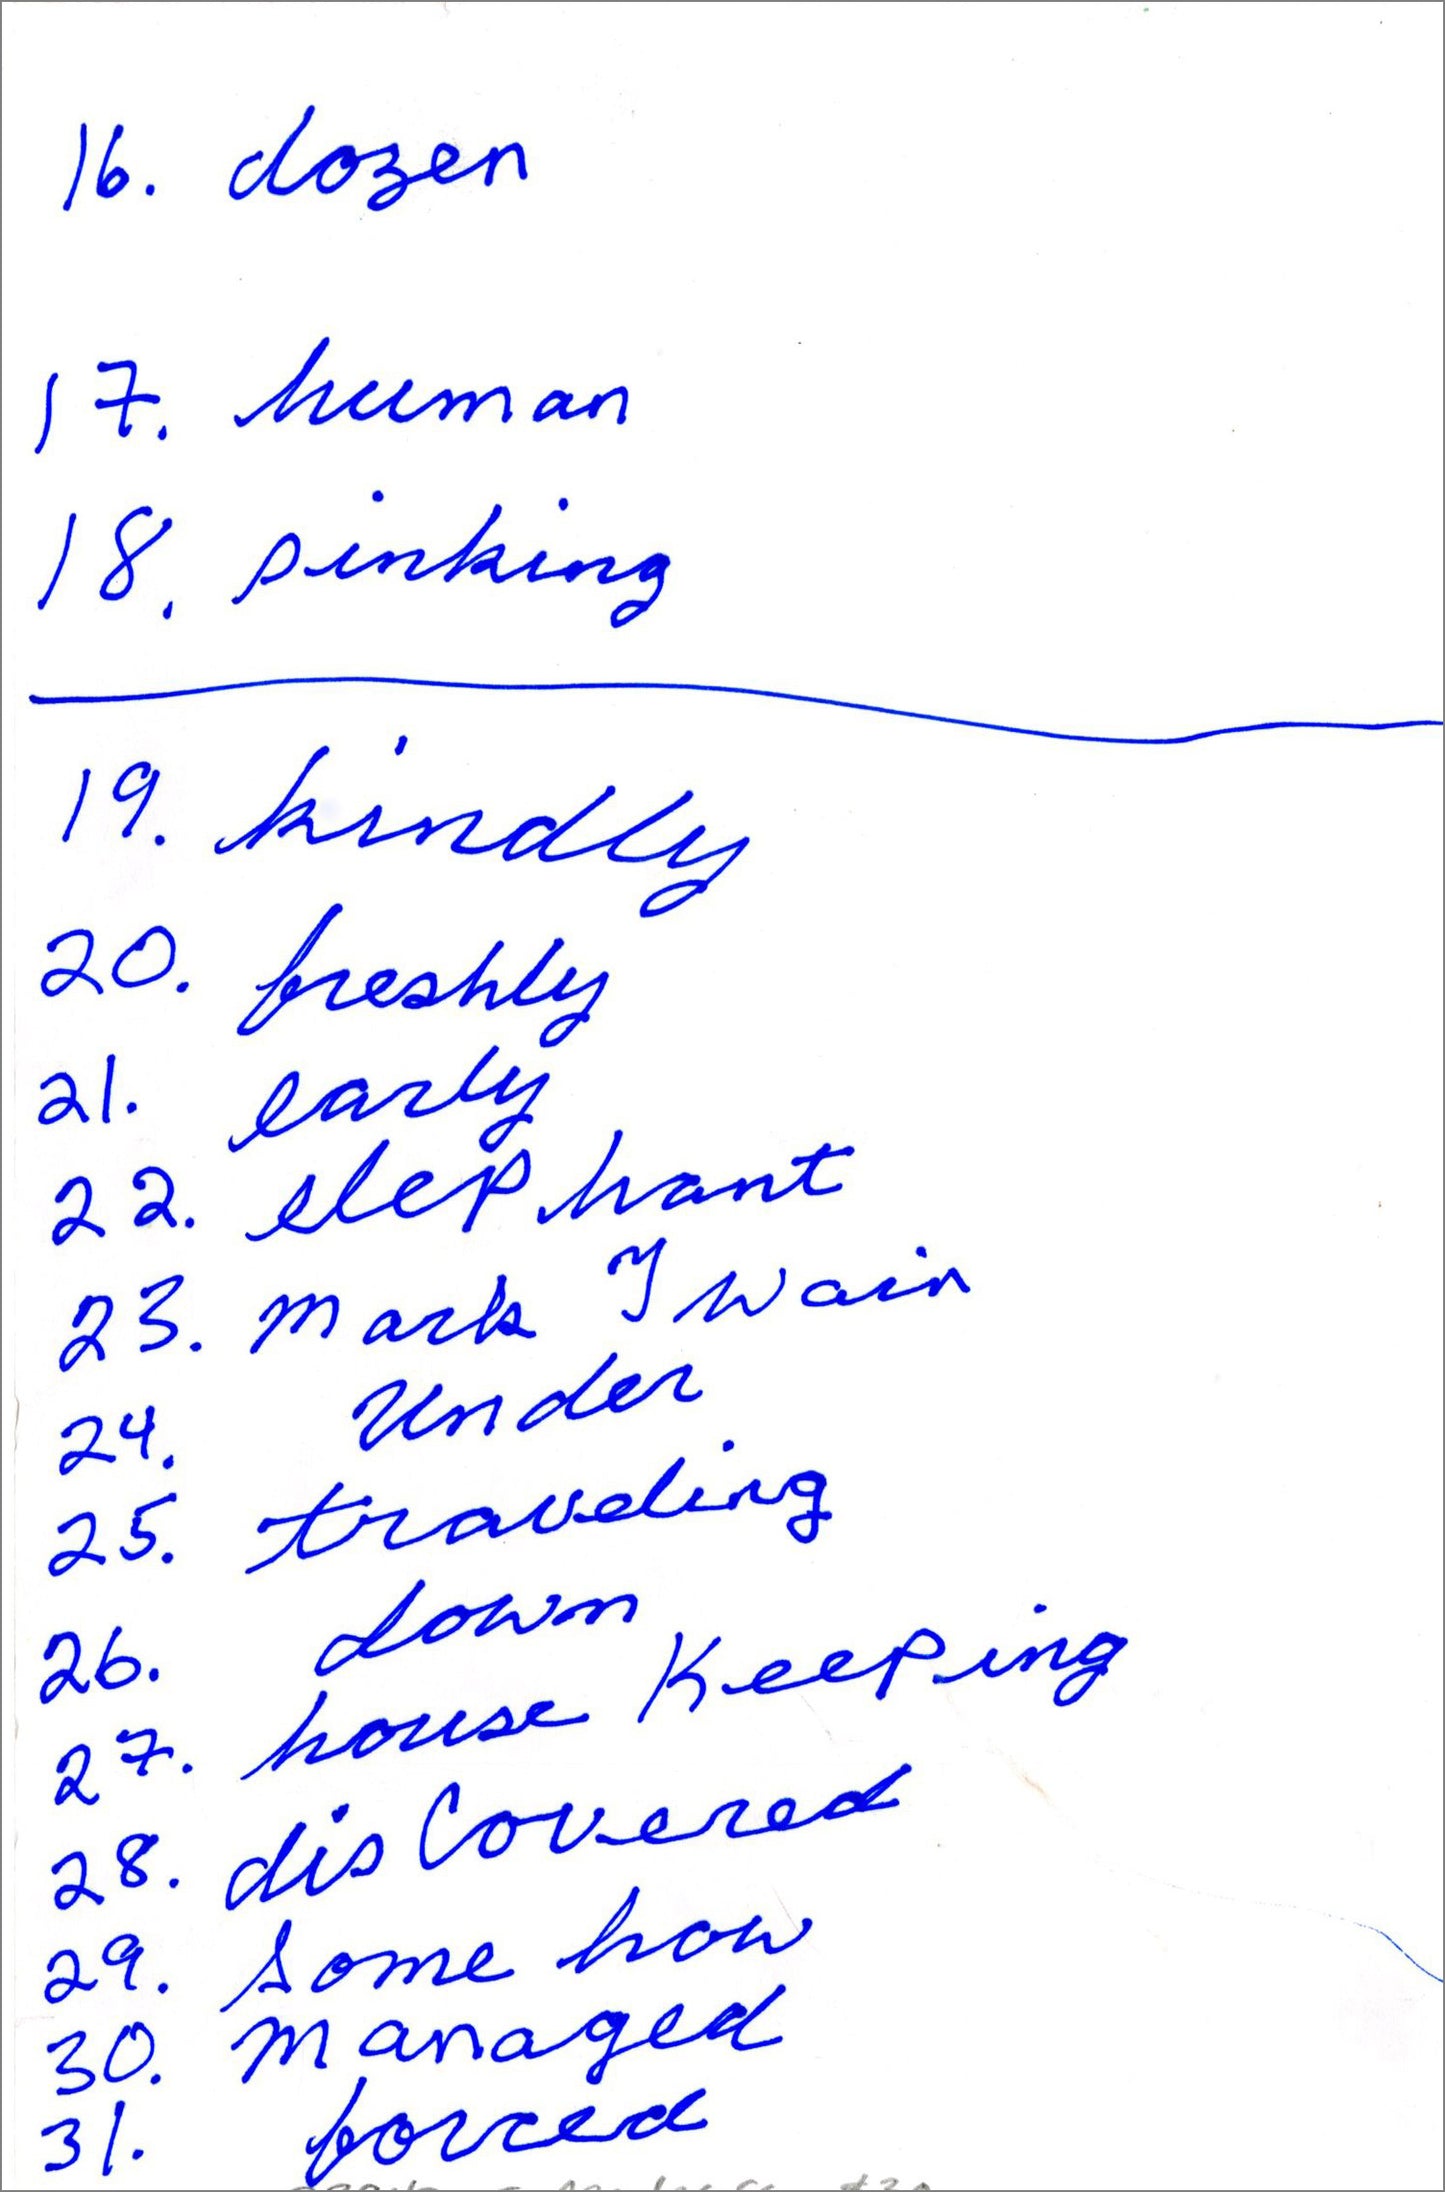 16. dozen
17. human
18. sinking
19. kindly
20. freshly
21. early
22. elephant
23. Mark Twain
24. Under
25. traveling
26. down
27. house Keeping
28. disCovered
29. Some how
30. Managed
31. forced